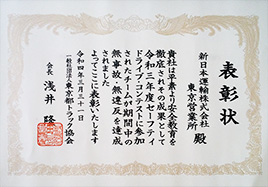 表彰状
新日本運輸株式会社
東京営業所 殿
貴社は平素より安全教育を
徹底されその成果として
令和三年度セーフティ
ドライブコンテストに参加
されたチームが期間中の
無事故・無違反を達成
されました
よってここに表彰いたします
令和四年三月三十一日
一般社団法人東京都トラック協会
会長 浅井 隆